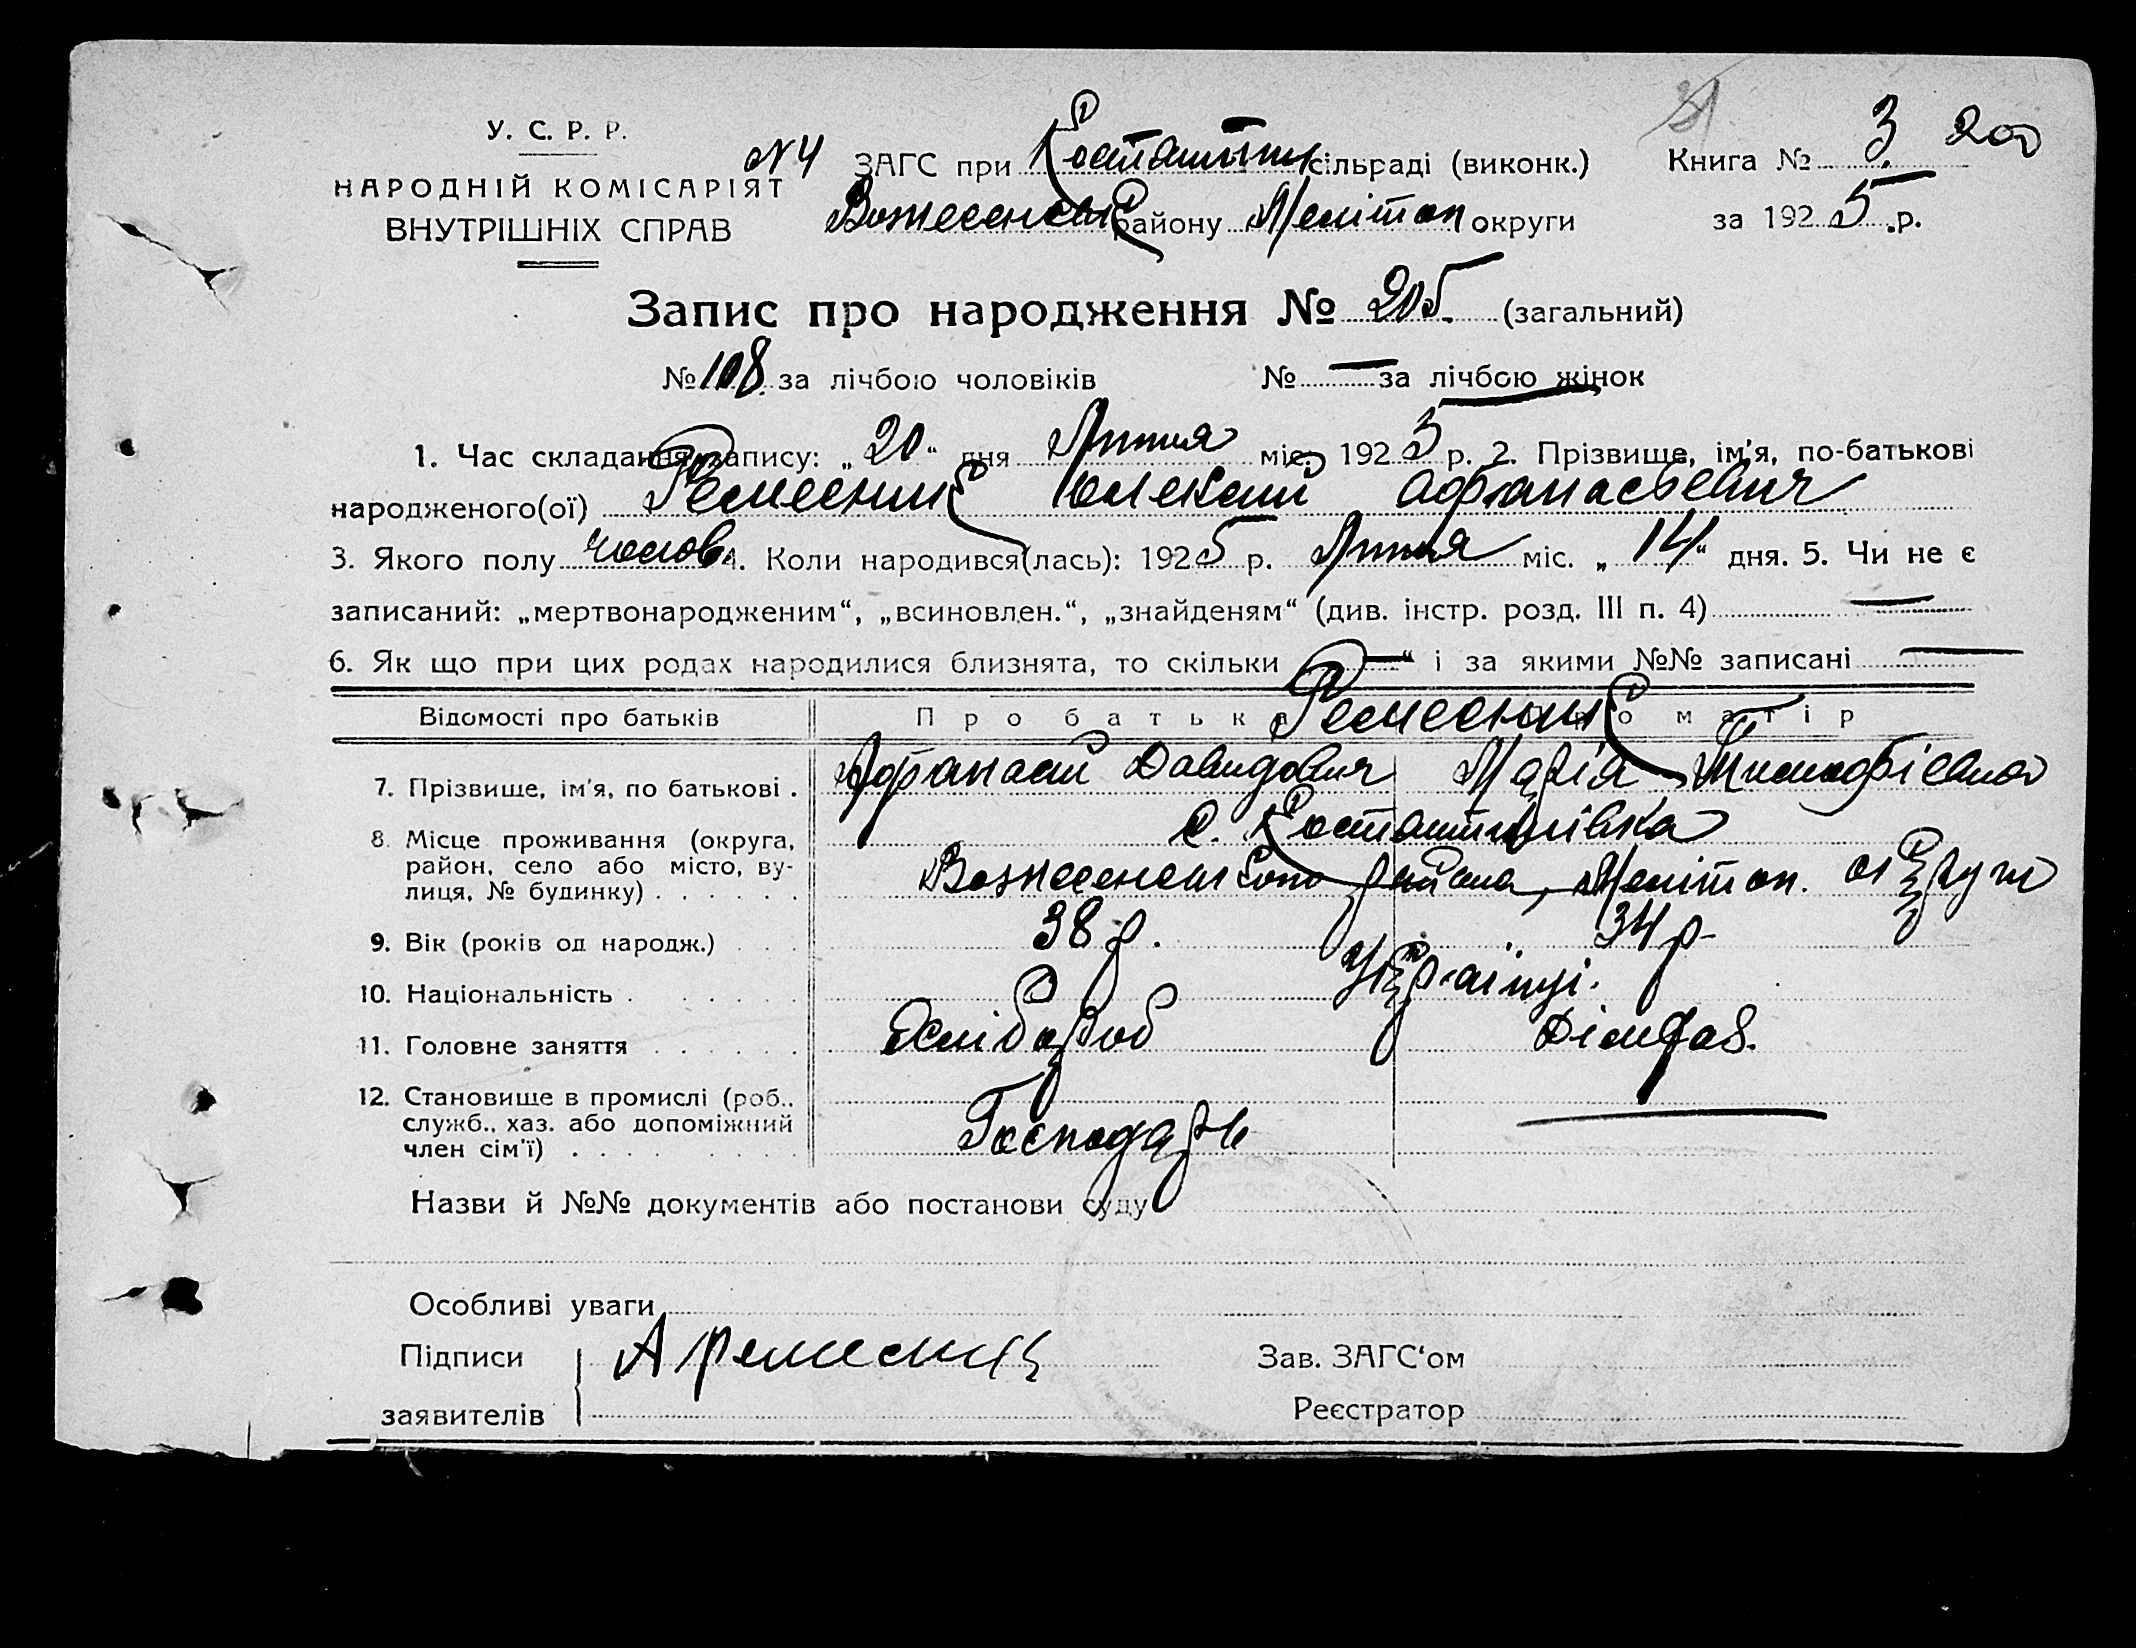 У. С. Р. Р.
НАРОДНІЙ КОМІСАРІЯТ
ВНУТРІШНІХ СПРАВ
№4 ЗАГС при Костянтин сільраді (виконк.) Книга № 3. 200
Вознесенськ району Мелітоп округи за 1925 р.
Запис про народження № 205. (загальний)
№ 108. за лічбою чоловіків № — за лічбою жінок
1. Час складання запису: „20“ дня Липня міс. 1925 р. 2. Прізвище, ім'я, по-батькові
народженого(ої) Ремесник Олексій Афанасьевич
3. Якого полу чолов. 4. Коли народився(лась): 1925 р. Липня міс. „14“ дня. 5. Чи не є
записаний: „мертвонародженим“, „всиновлен.“, „знайденям“ (див. інстр. розд. III п. 4) —
6. Як що при цих родах народилися близнята, то скільки —“ і за якими №№ записані —
Відомості про батьків Про батька Про матір
Ремесник
7. Прізвище, ім'я, по батькові . Афанасий Давидович Марія Тимофієвна
8. Місце проживання (округа, с. Костянтинівка
район, село або місто, ву- Вознесенського района, Мелітоп. округи
лиця, № будинку)
9. Вік (років од народж.) 38 р. 34 р.
10. Національність . Українці.
11. Головне заняття Хлібороб Домгос.
12. Становище в промислі (роб.. Господарь —
служб., хаз. або допоміжний
член сім'ї)
Назви й №№ документів або постанови суду
Особливі уваги
Підписи А Ремесник Зав. ЗАГС‘ом
заявителів Реєстратор